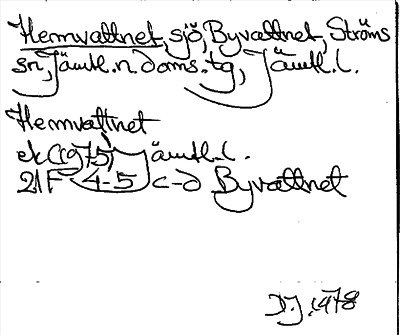 Hemvattnet, sjö, Byvattnet, Ströms
sn, Jämtl. n. doms. tg, Jämtl. l.
Hemvattnet
ek (1975) Jämtl. l.
21F 4-5 c-d Byvattnet
D.J. 1978